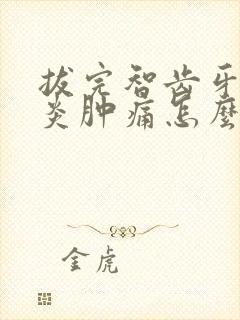 拔完智齿牙
炎肿痛怎麼
金虎